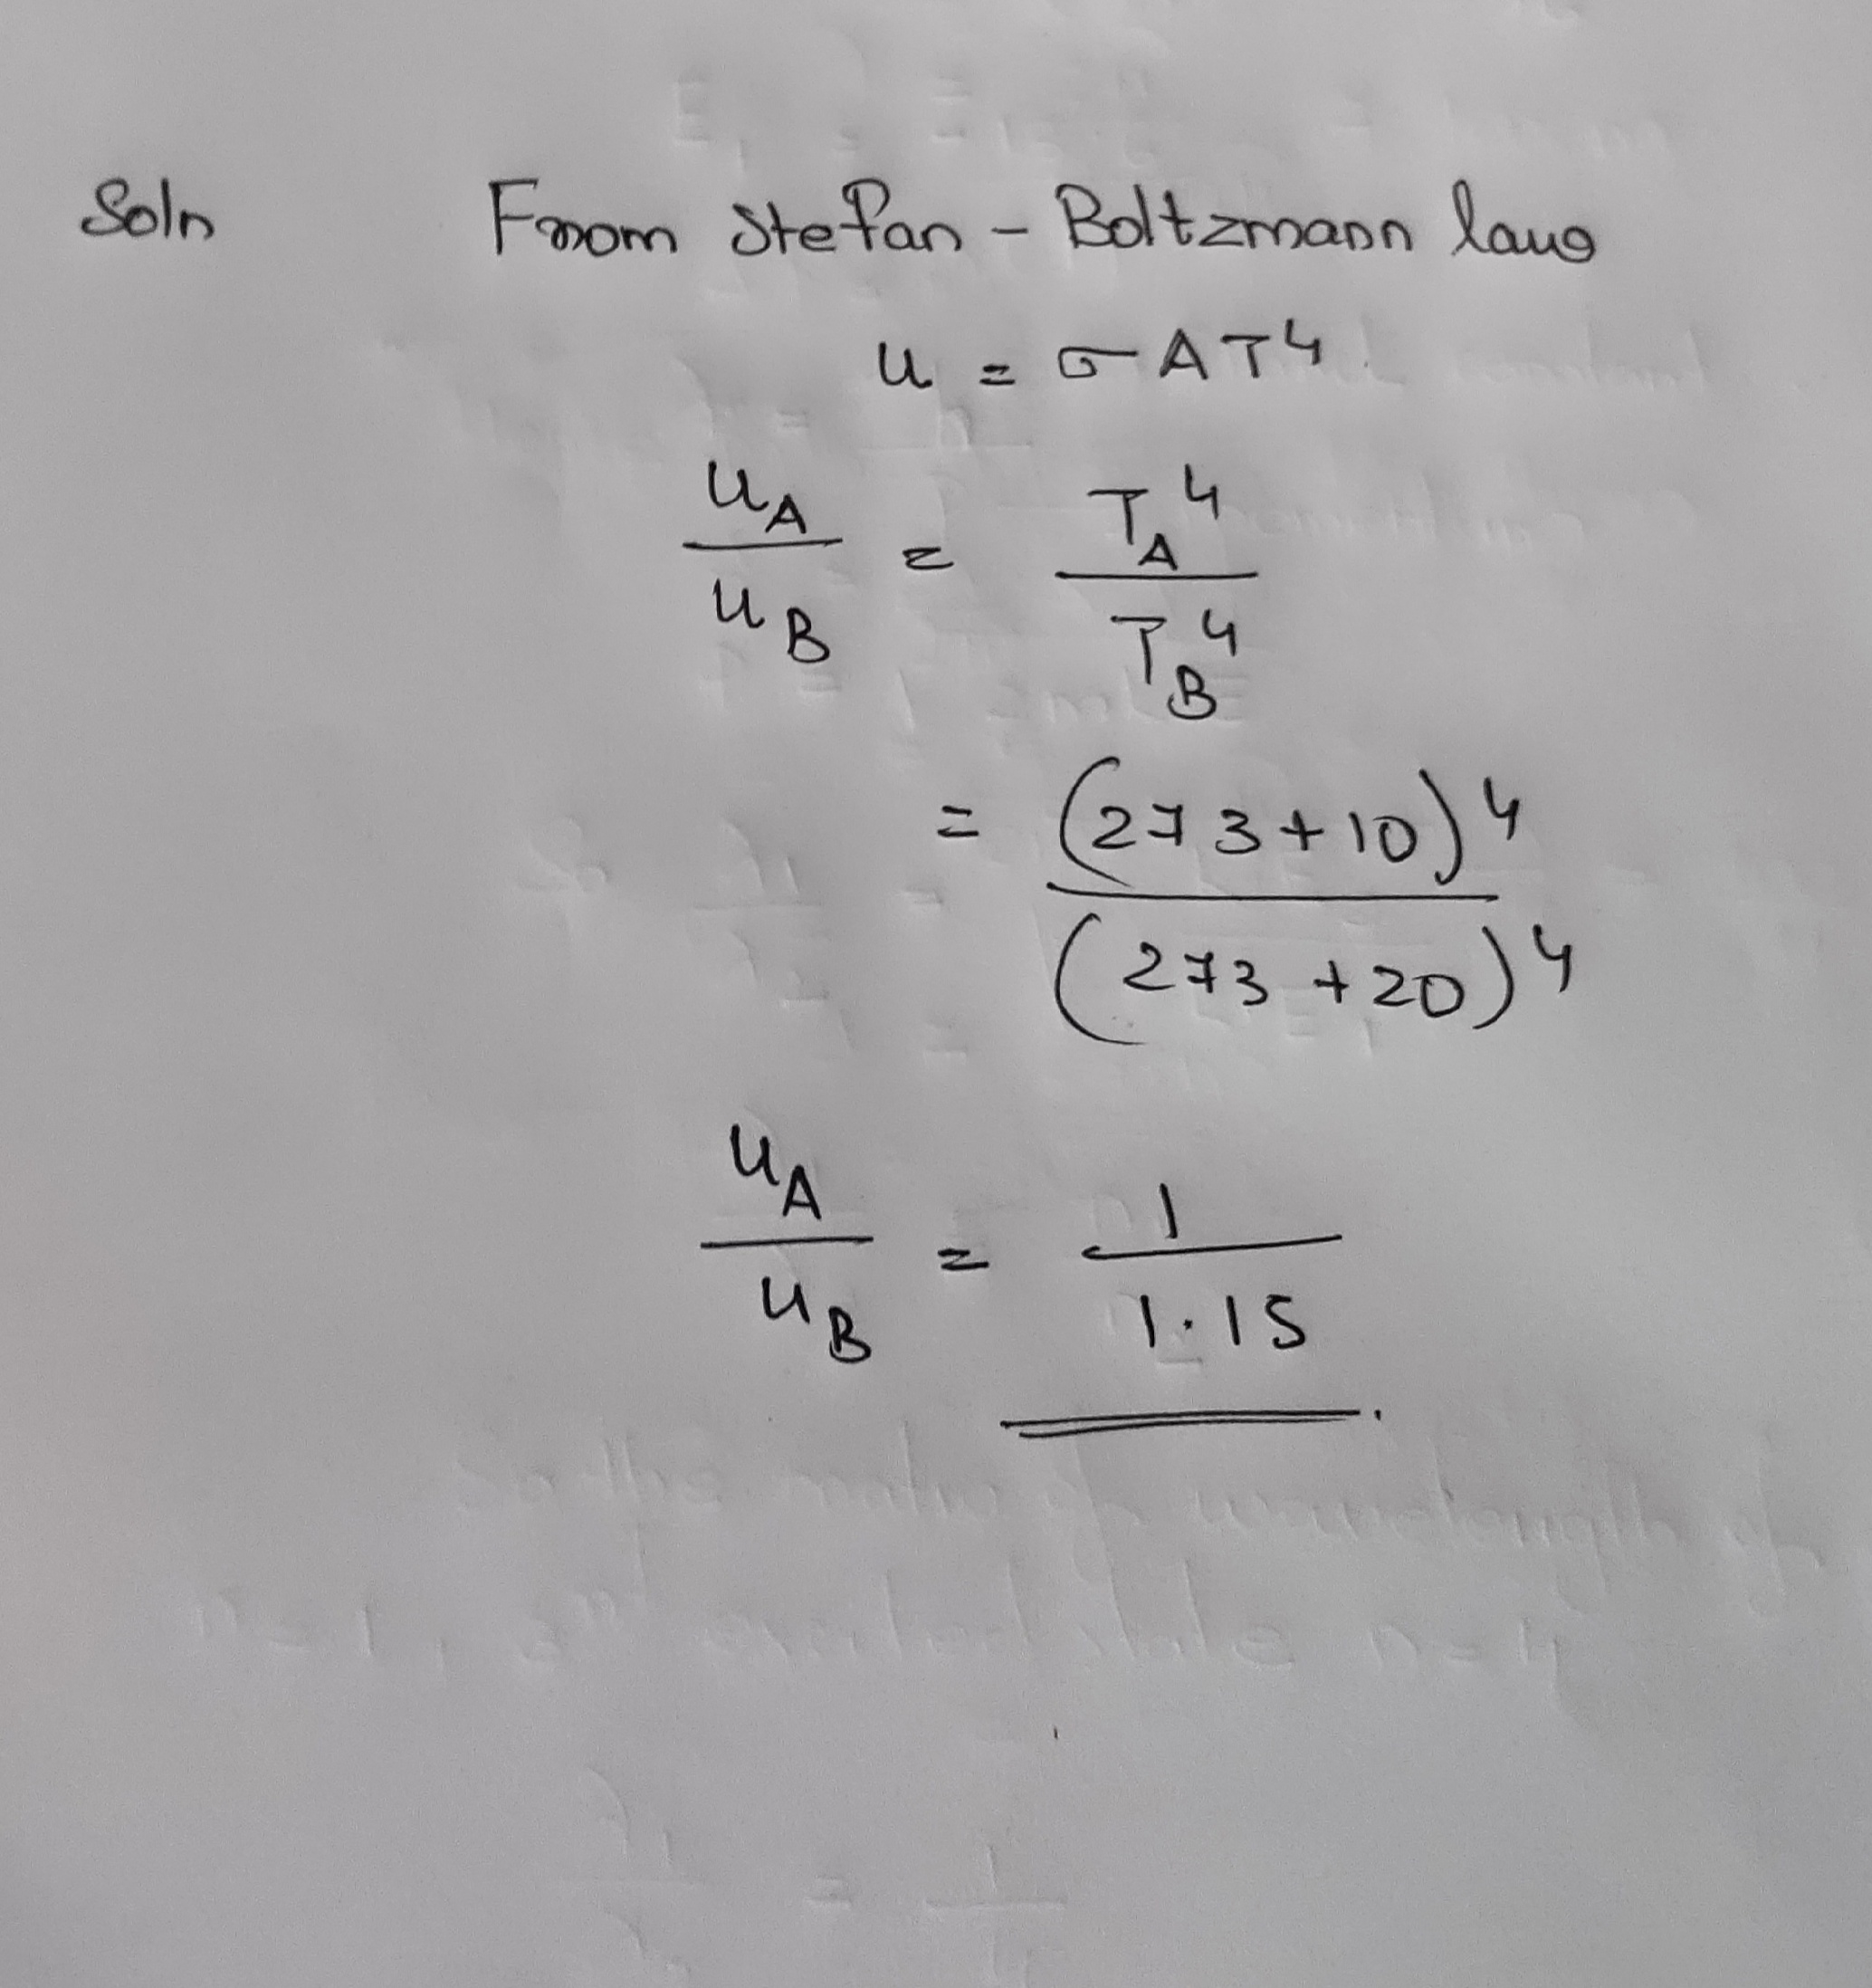 Soln From Stefan - Boltzmann law
u = σAT⁴
u_A / u_B = T_A⁴ / T_B⁴
= (273+10)⁴ / (273+20)⁴
u_A / u_B = 1 / 1.15